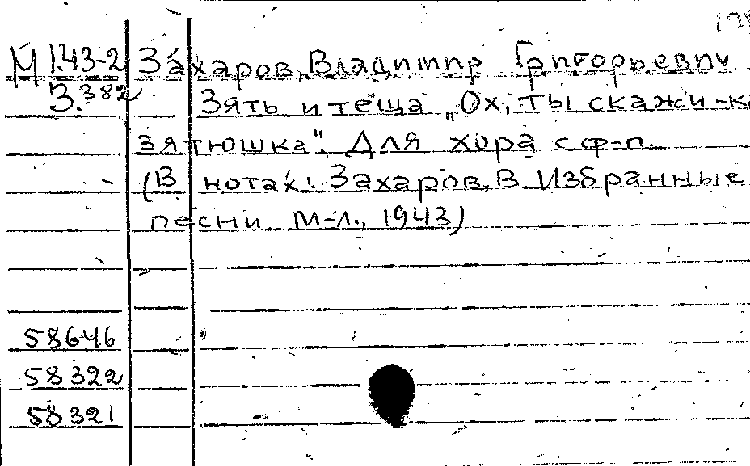 М 1.43-2 Захаров, Владимир Григорьевич
З.382 Зять и теща „Ох, ты скажи-к
зятюшка". Для хора с ф-п.
(В нотах: Захаров, В. Избранные
песни М-Л., 1943)
58646
58322
58321